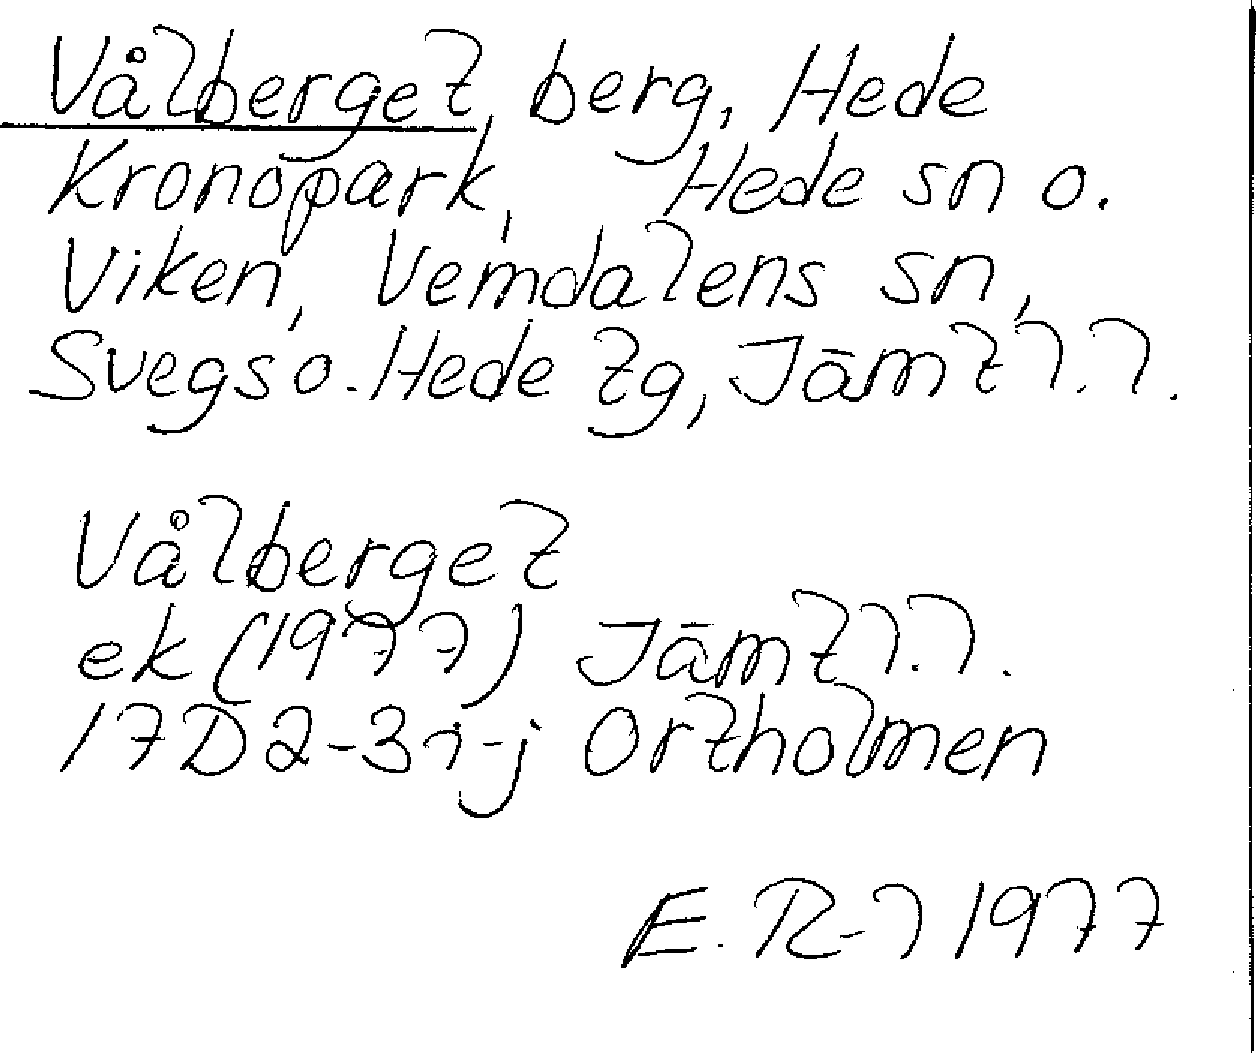 Vålberget, berg, Hede
Kronopark, Hede sn o.
Viken, Vemdalens sn,
Svegs o. Hede tg, Jämtl. l.
Vålberget
ek (1977) Jämtl. l.
17D 2-3 i-j Ortholmen
E. R-l 1977